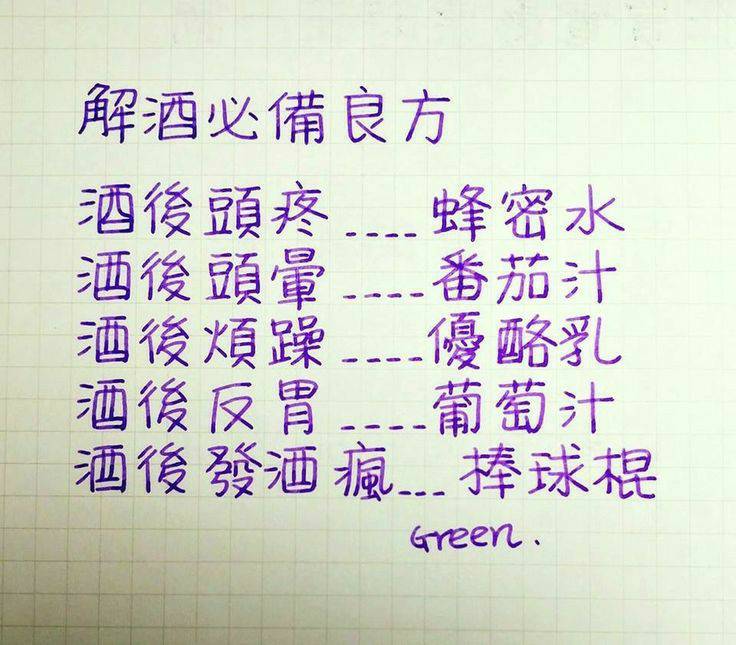 解酒必備良方
酒後頭疼....蜂密水
酒後頭暈....番茄汁
酒後煩躁....優酪乳
酒後反胃....葡萄汁
酒後發酒瘋...捧球棍
Green.